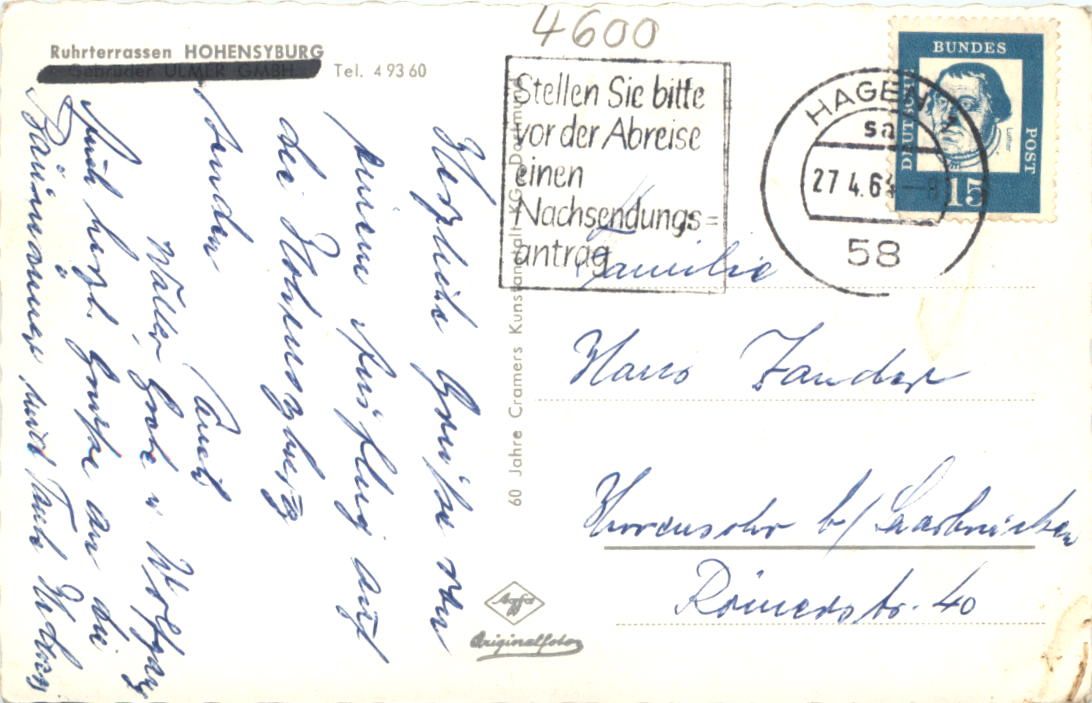 4600
Ruhrterrassen HOHENSYBURG
Gebrüder ULMER GMBH Tel. 4 93 60
Stellen Sie bitte
vor der Abreise
einen
Nachsendungs=
antrag
HAGEN
sa
27 4.64
58
DEUTSCHE BUNDES POST
Luther
15
Herzliche Grüße von
einem Ausflug auf
die Hohensyburg
senden
Euch
Walter, Grete u. Wolfgang
Auch herzl. Grüße an die
und Tante Hedwig
60 Jahre Cramers Kunstanstalt KG Dortmund
Agfa
Originalfoto
Familie
Hans Zander
b/ Saarbrücken
Römerstr. 40